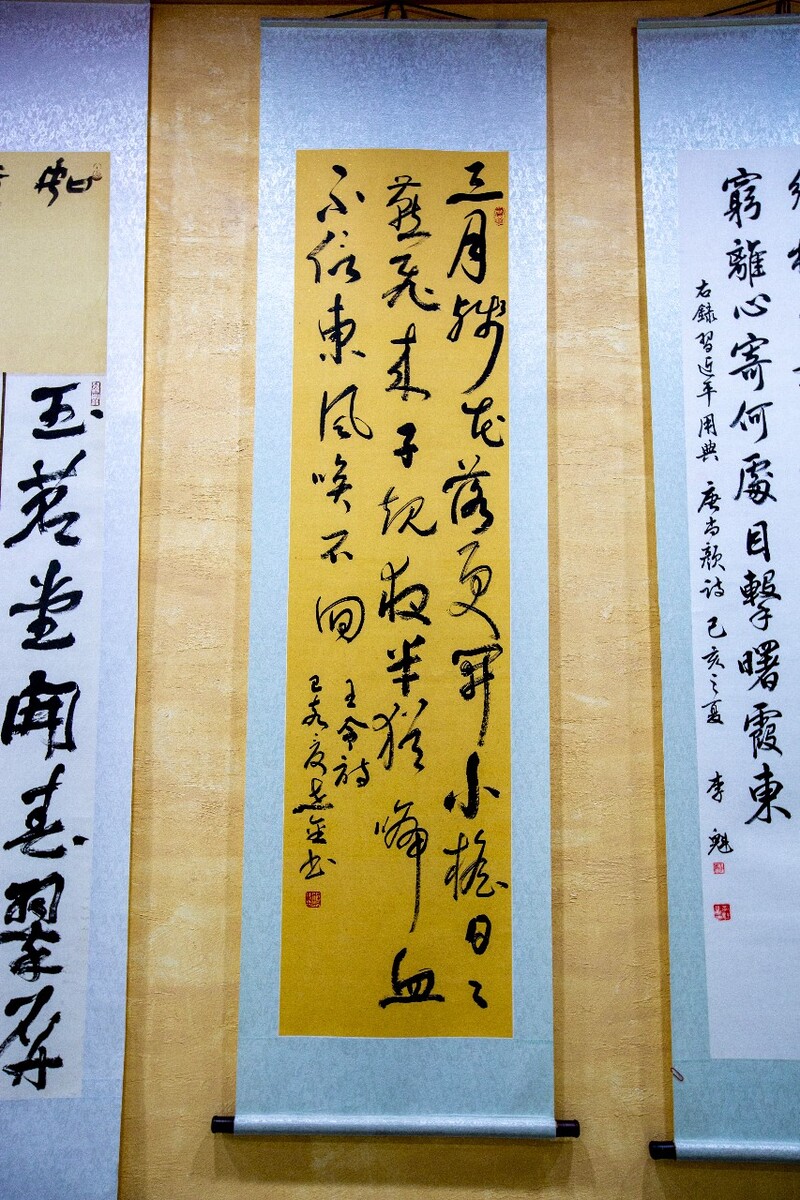 窮離心寄何處目擊曙霞東
右録習近平用典 唐尚颜詩 己亥之夏 李魁
三月殘花落更開小檐日〻
燕飛来子規夜半猶啼血
不信東風唤不回
王令詩
己亥夏
玉茗堂開春翠屏